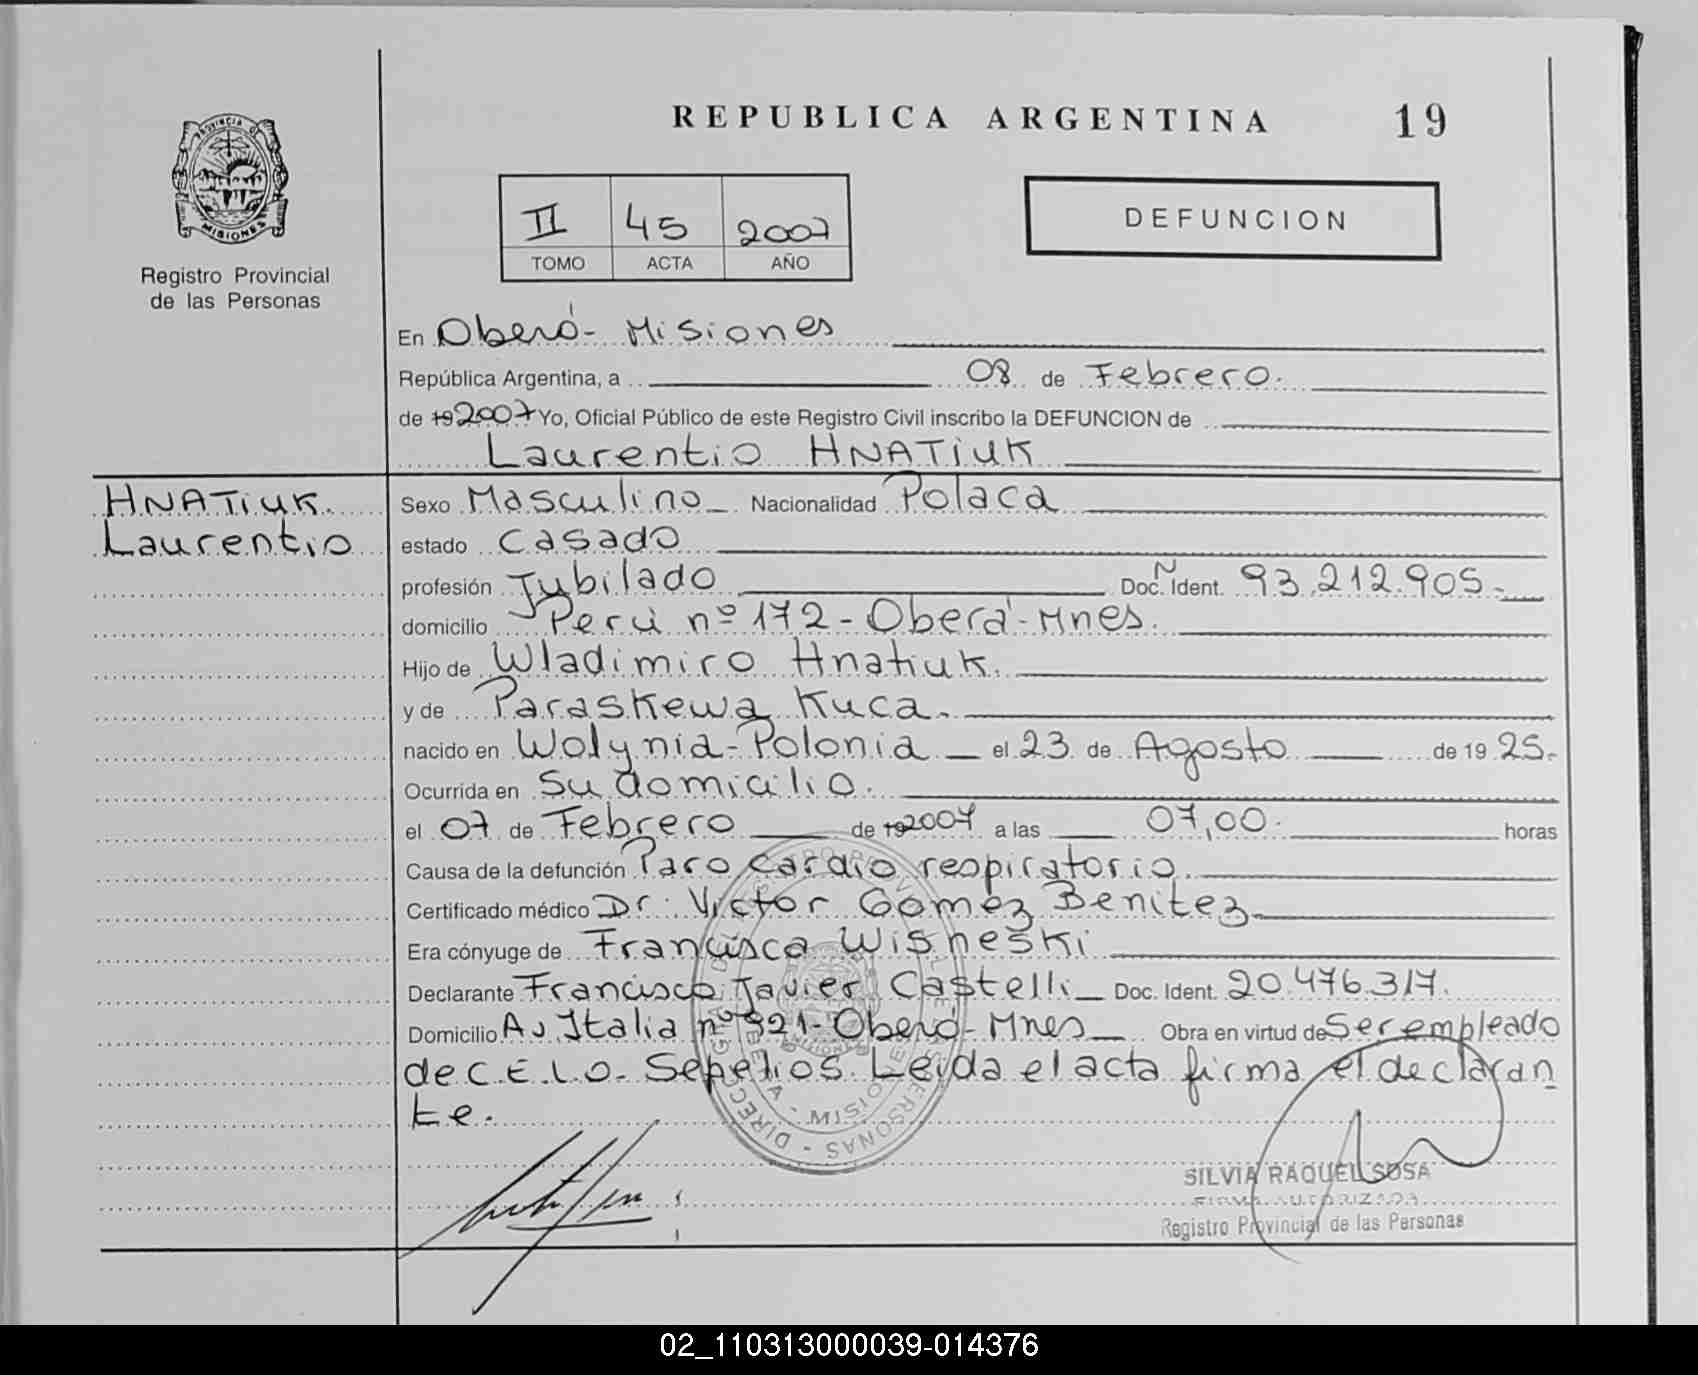 REPUBLICA ARGENTINA 19
PROVINCIA DE
MISIONES
Registro Provincial
de las Personas
II 45 2007
TOMO ACTA AÑO
DEFUNCION
En Oberá - Misiones
República Argentina, a 08 de Febrero.
de 19 2007 Yo, Oficial Público de este Registro Civil inscribo la DEFUNCION de
Laurentio HNATIUK
HNATIUK
Laurentio
Sexo Masculino Nacionalidad Polaca
estado Casado
profesión Jubilado Doc. N Ident. 93.212.905.-
domicilio Perú nº 172 - Oberá - Mnes.
Hijo de Wladimiro Hnatiuk.
y de Paraskewa Kuca.
nacido en Wolynia - Polonia el 23 de Agosto de 19 25.-
Ocurrida en Su domicilio.
el 07 de Febrero de 19 2007 a las 07,00. horas
Causa de la defunción Paro cardio respiratorio.
Certificado médico Dr. Victor Gomez Benitez
Era cónyuge de Francisca Wisneski
Declarante Francisco Javier Castelli Doc. Ident. 20.476.317.
Domicilio Av Italia nº 321 - Oberá - Mnes Obra en virtud de Ser empleado
de C.E.L.O. Sepelios. Leida el acta firma el declaran
te.
SILVIA RAQUEL SOSA
FIRMA AUTORIZADA
Registro Provincial de las Personas
02_110313000039-014376